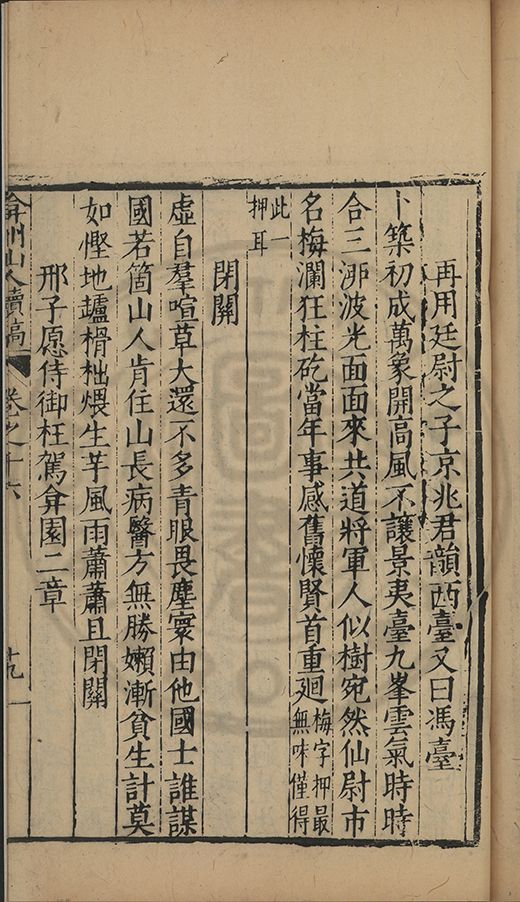 再用廷尉之子京兆君韻西臺又曰馮臺
卜築初成萬象開高風不讓景夷臺九峯雲氣時時
合三泖波光面面來共道將軍人似樹宛然仙尉市
名梅瀾狂柱砥當年事感舊懷賢首重廻梅字押最無味僅得
此一押耳
閉關
虛自羣喧草大還不多青眼畏塵寰由他國士誰謀
國若箇山人肯住山長病醫方無勝嬾漸貧生計莫
如慳地罏榾柮煨生芋風雨蕭蕭且閉關
邢子愿侍御枉駕弇園二章
弇州山人續稿 卷之十六 十九